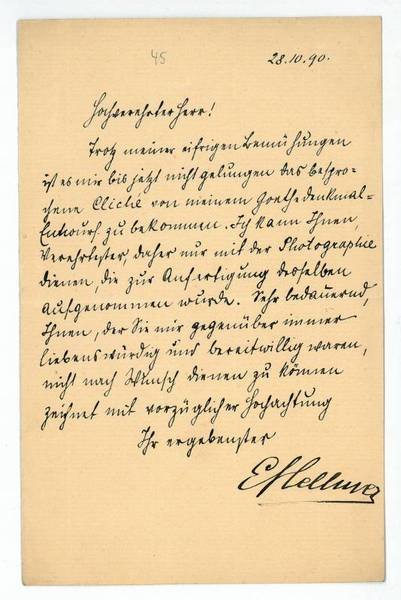 45
28.10.90.
Hochverehrter Herr!
Trotz meiner eifrigen Bemühungen
ist es mir bis jetzt nicht gelungen das bespro-
chene Cliché von meinem Goethedenkmal-
Entwurf zu bekommen. Ich kann Ihnen,
Verehrtester, daher nur mit der Photographie
dienen, die zur Anfertigung desselben
aufgenommen wurde. Sehr bedauernd,
Ihnen, der Sie mir gegenüber immer
liebenswürdig und bereitwillig waren,
nicht nach Wunsch dienen zu können
zeichnet mit vorzüglicher Hochachtung
Ihr ergebenster
EHellmer